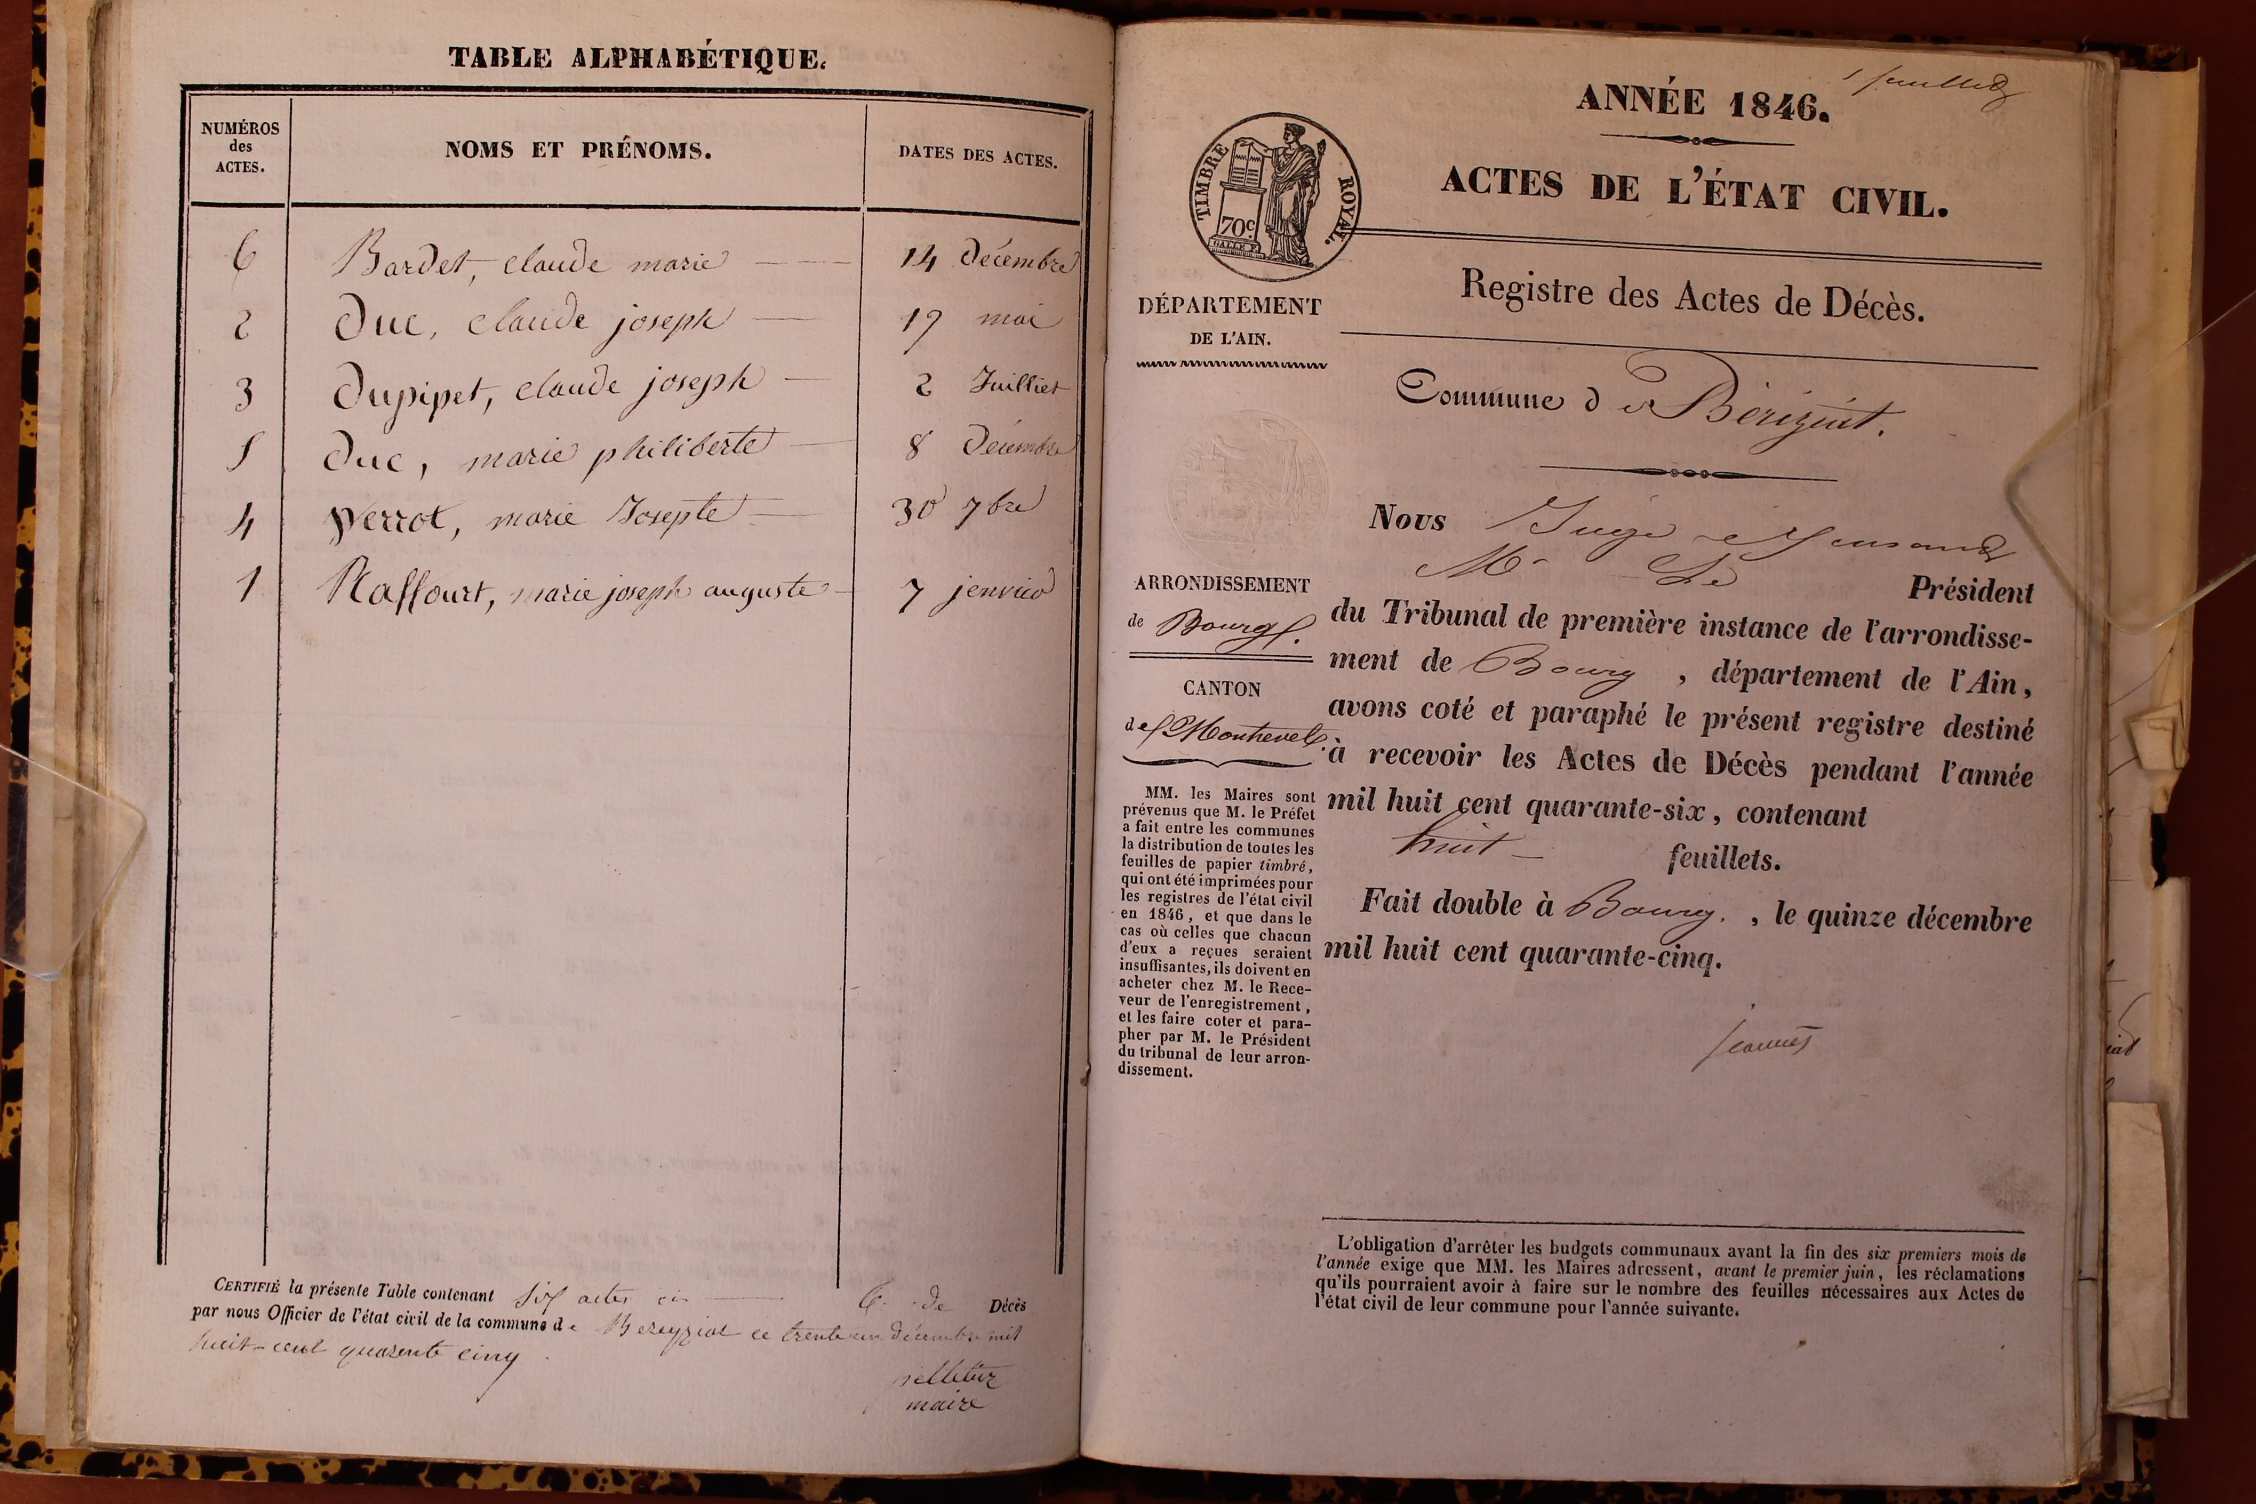 TABLE ALPHABÉTIQUE.
NUMÉROS
des
ACTES.
NOMS ET PRÉNOMS.
DATES DES ACTES.
6 Bardet, claude marie 14 Décembre
2 Duc, claude joseph 19 mai
3 Dupipet, claude joseph 2 Juilliet
5 Duc, marie philiberte 8 Décembre
4 perrot, marie Josepte 30 7bre
1 Raffourt, marie joseph auguste 7 jenvier
CERTIFIÉ la présente Table contenant six actes 6 de Décès
par nous Officier de l'état civil de la commune de Bereyziat ce trente un décembre mil
huit-cent quarente cinq.
pelletier
maire
1 feuillet
ANNÉE 1846.
ACTES DE L'ÉTAT CIVIL.
TIMBRE ROYAL.
70c.
Registre des Actes de Décès.
DÉPARTEMENT
DE L'AIN.
Commune de
ARRONDISSEMENT
de Bourg.
CANTON
de Montrevel.
MM. les Maires sont
prévenus que M. le Préfet
a fait entre les communes
la distribution de toutes les
feuilles de papier timbré,
qui ont été imprimées pour
les registres de l'état civil
en 1846, et que dans le
cas où celles que chacun
d'eux a reçues seraient
insuffisantes, ils doivent en
acheter chez M. le Rece-
veur de l'enregistrement,
et les faire coter et para-
pher par M. le Président
du tribunal de leur arron-
dissement.
Nous Juge
Mr Le Président
du Tribunal de première instance de l'arrondisse-
ment de Bourg, département de l'Ain,
avons coté et paraphé le présent registre destiné
à recevoir les Actes de Décès pendant l'année
mil huit cent quarante-six, contenant
huit feuillets.
Fait double à Bourg., le quinze décembre
mil huit cent quarante-cinq.
L'obligation d'arrêter les budgets communaux avant la fin des six premiers mois de
l'année exige que MM. les Maires adressent, avant le premier juin, les réclamations
qu'ils pourraient avoir à faire sur le nombre des feuilles nécessaires aux Actes de
l'état civil de leur commune pour l'année suivante.